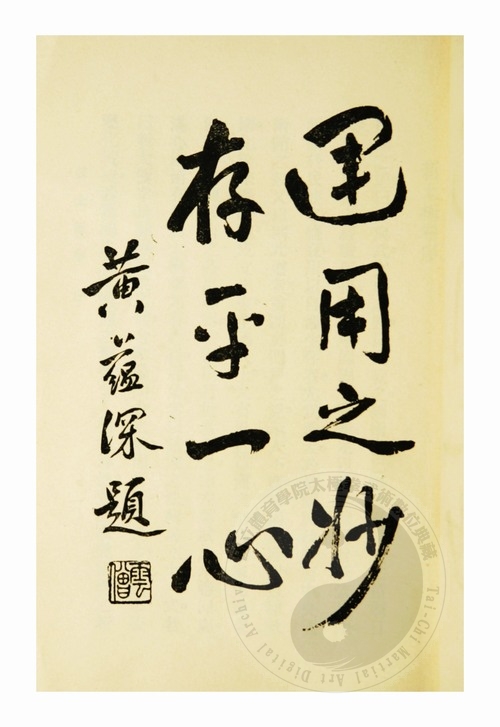 運用之妙
存乎一心
黃蘊深題
立體育學院太極
術數位典藏
Tai-Chi Martial Art Digital Archiv